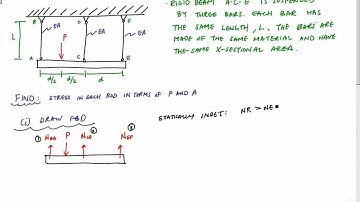 • RIGID BEAM A-C-E IS SUSPENDED
BY THREE BARS. EACH BAR HAS
THE SAME LENGTH, L. THE BARS ARE
MADE OF THE SAME MATERIAL AND HAVE
THE SAME X-SECTIONAL AREA.
B D F
EA EA EA
L
P
A C E
d/2 d/2 d
FIND: STRESS IN EACH ROD IN TERMS OF P AND A
(i) DRAW FBD
STATICALLY INDET: NR > NE
① ② ③
NAB P NCD NEF